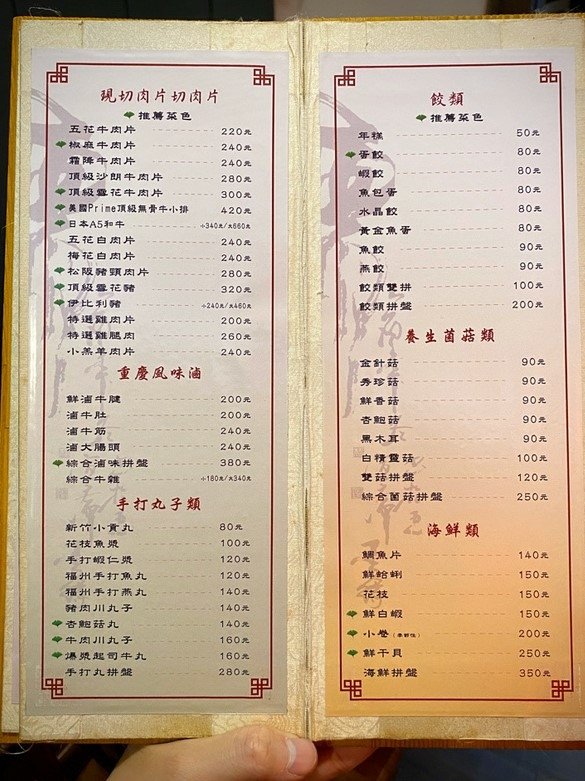 現切肉片切肉片
推薦菜色
五花牛肉片 220元
椒麻牛肉片 240元
霜降牛肉片 240元
頂級沙朗牛肉片 280元
頂級雪花牛肉片 300元
美國Prime頂級無骨牛小排 420元
日本A5和牛 小340元/大660元
五花白肉片 240元
梅花白肉片 240元
松阪豬頸肉片 280元
頂級雪花豬 320元
伊比利豬 小240元/大460元
特選雞肉片 200元
特選雞腿肉 260元
小羔羊肉片 240元
重慶風味滷
鮮滷牛腱 200元
滷牛肚 200元
滷牛筋 240元
滷大腸頭 240元
綜合滷味拼盤 380元
綜合牛雜 小180元/大340元
手打丸子類
新竹小貢丸 80元
花枝魚漿 100元
手打蝦仁漿 120元
福州手打魚丸 120元
福州手打燕丸 140元
豬肉川丸子 140元
杏鮑菇丸 140元
牛肉川丸子 160元
爆漿起司牛丸 160元
手打丸拼盤 280元
餃類
推薦菜色
年糕 50元
蛋餃 80元
蝦餃 80元
魚包蛋 80元
水晶餃 80元
黃金魚蛋 80元
魚餃 90元
燕餃 90元
餃類雙拼 100元
餃類拼盤 200元
養生菌菇類
金針菇 90元
秀珍菇 90元
鮮香菇 90元
杏鮑菇 90元
黑木耳 90元
白精靈菇 100元
雙菇拼盤 120元
綜合菌菇拼盤 250元
海鮮類
鯛魚片 140元
鮮蛤蜊 150元
花枝 150元
鮮白蝦 150元
小卷 200元
鮮干貝 250元
海鮮拼盤 350元